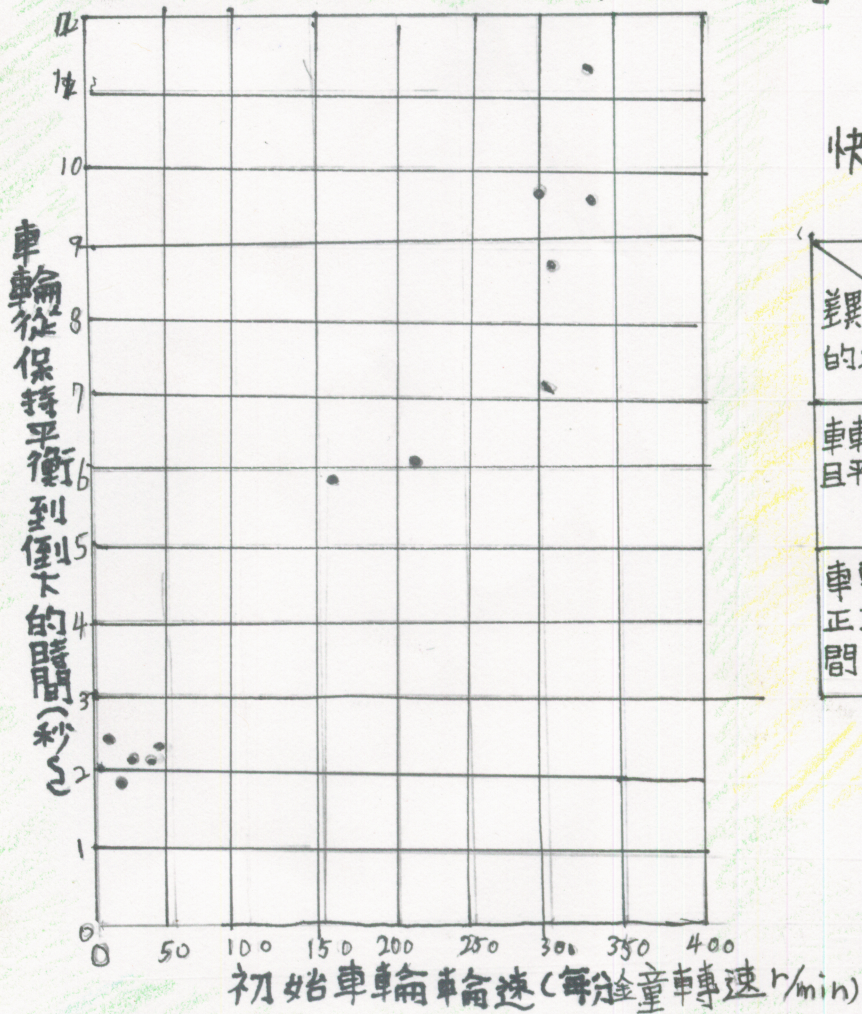 12
11
10
9
8
7
6
5
4
3
2
1
0
車輪從保持平衡到倒下的時間(秒S)
0 50 100 150 200 250 300 350 400
初始車輪輪速(每分鐘轉速r/min)
快
差異
的
車輪
且平
車輪
正
間